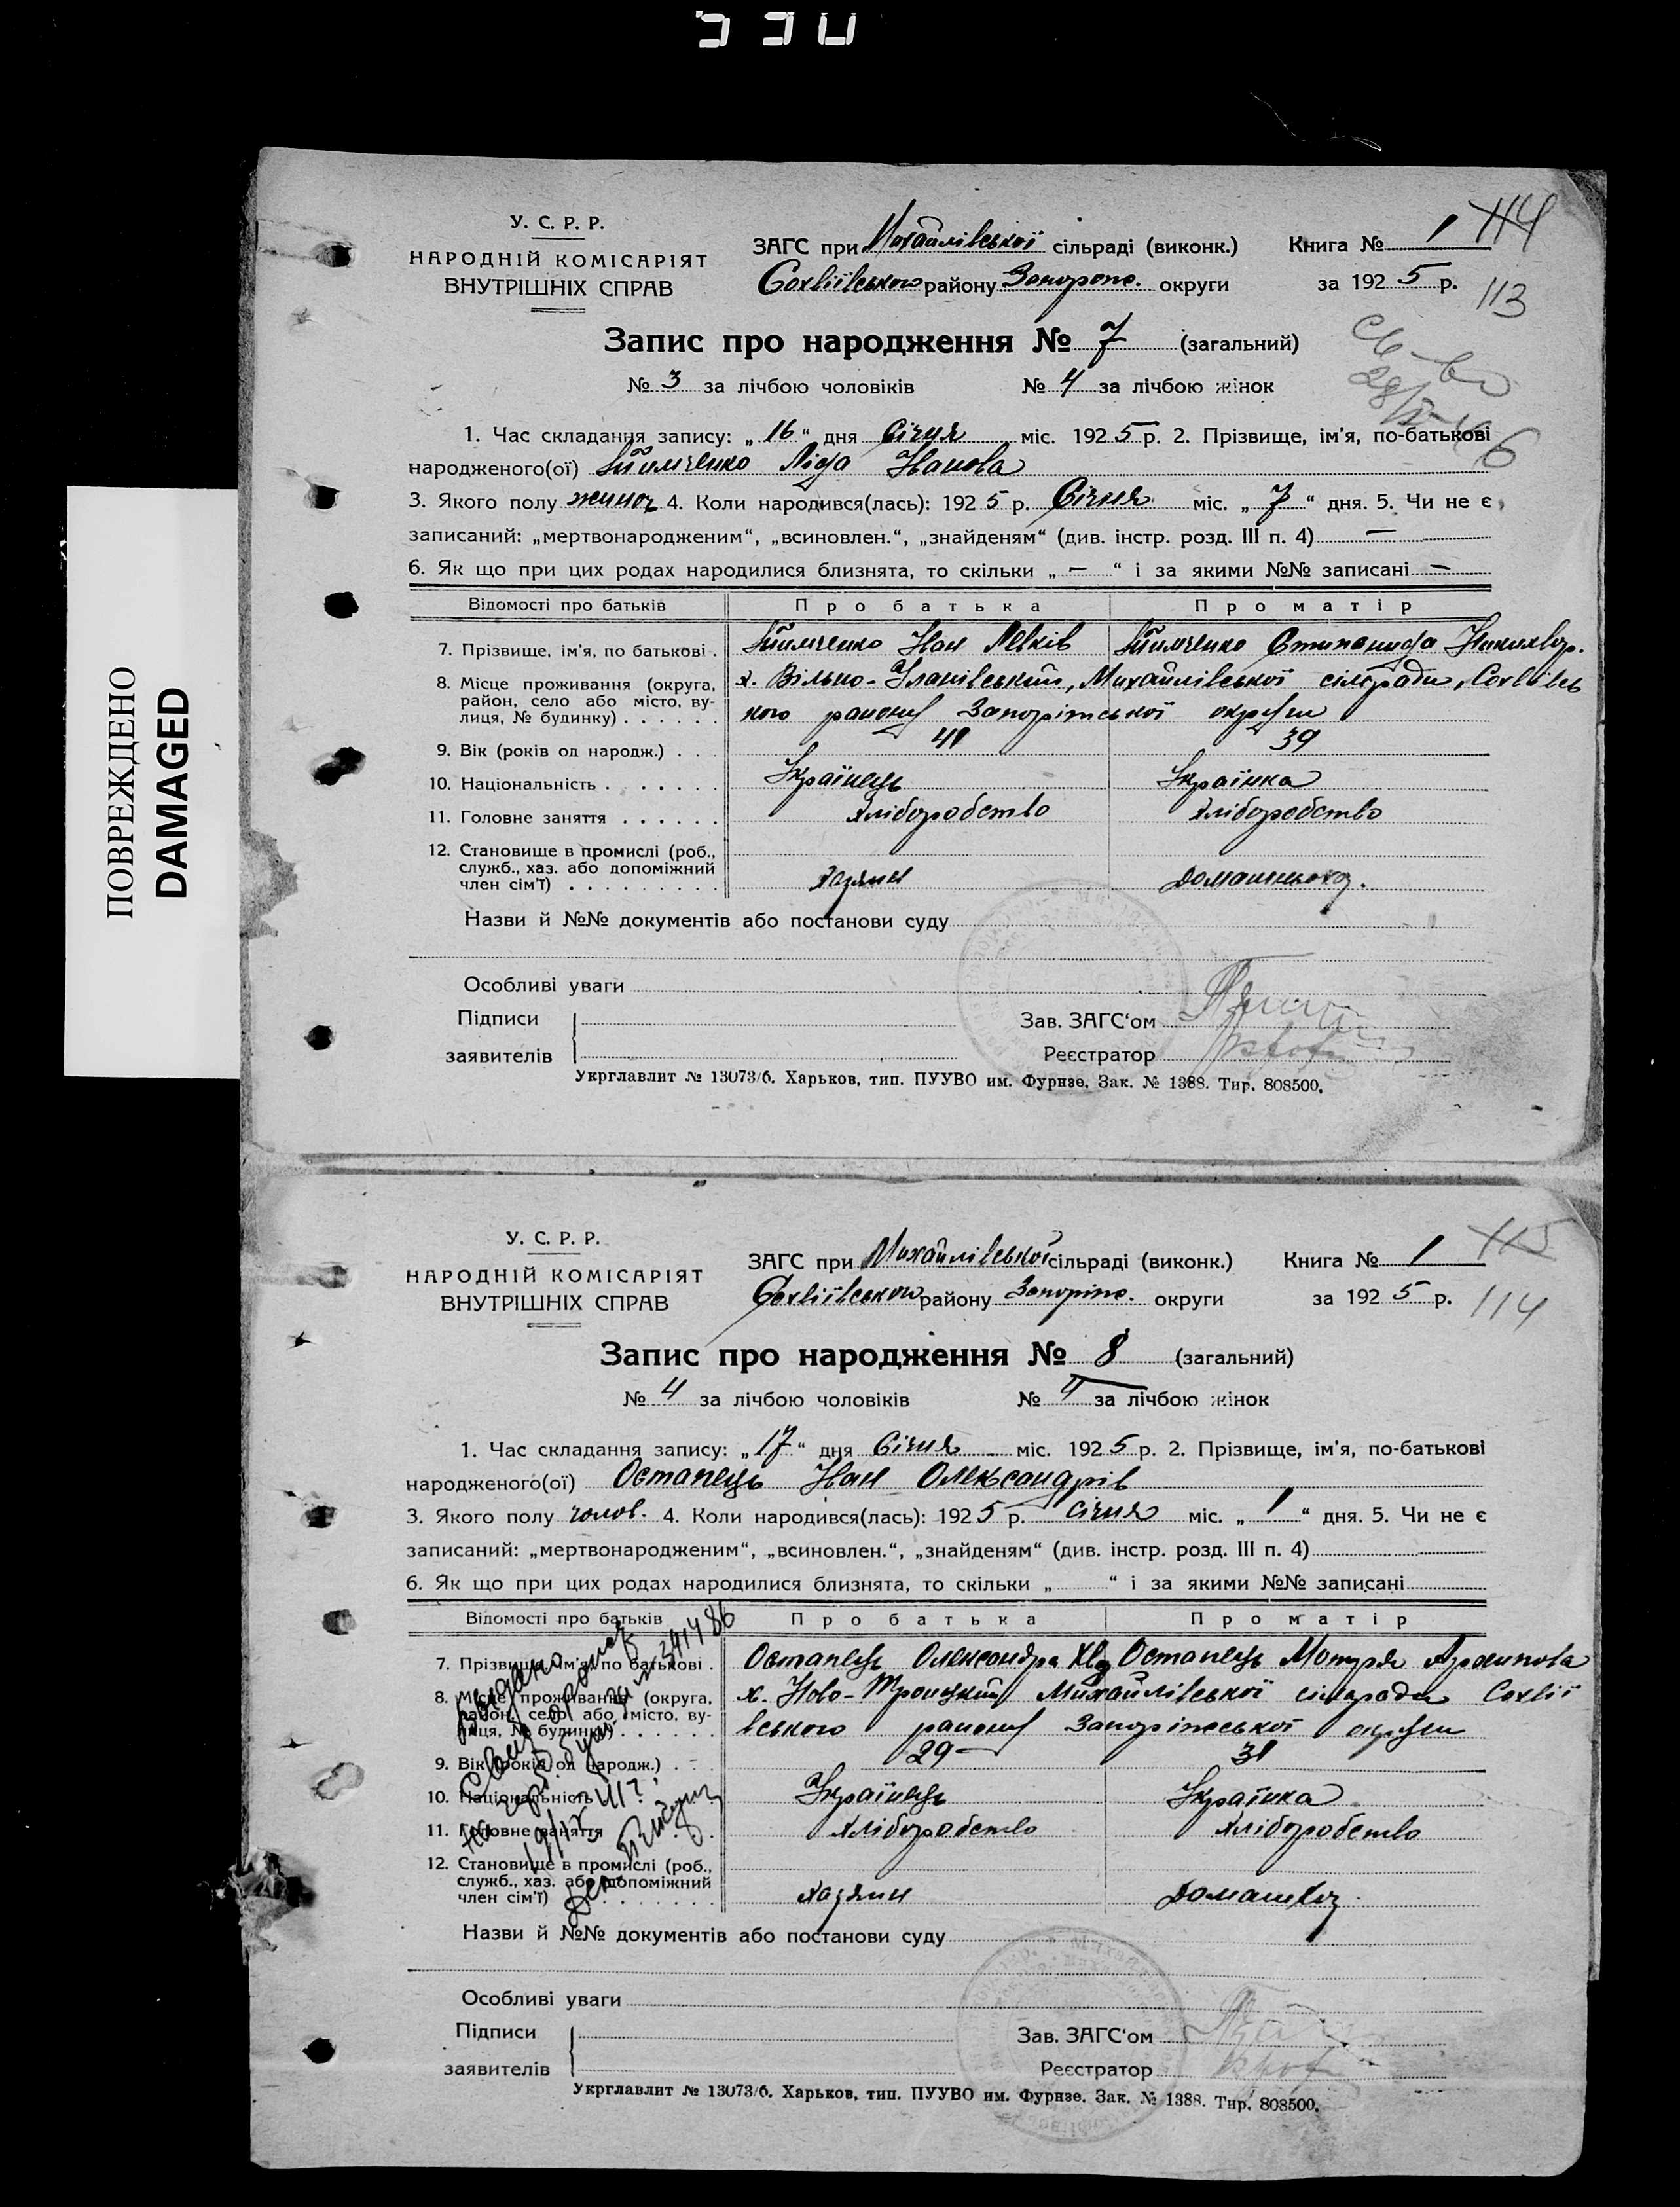 ПОВРЕЖДЕНО
DAMAGED
У. С. Р. Р.
НАРОДНІЙ КОМІСАРІЯТ
ВНУТРІШНІХ СПРАВ
ЗАГС при Михайлівської сільраді (виконк.) Книга № 1 114
Софіївського району Запорож. округи за 1925 р. 113
Запис про народження № 7 (загальний)
№ 3 за лічбою чоловіків № 4 за лічбою жінок
1. Час складання запису: „16“ дня Січня міс. 1925 р. 2. Прізвище, ім'я, по-батькові
народженого(ої) Тимченко Ліда Іванова
3. Якого полу жиноч 4. Коли народився(лась): 1925 р. Січня міс. „7“ дня. 5. Чи не є
записаний: „мертвонародженим“, „всиновлен.“, „знайденям“ (див. інстр. розд. III п. 4) —
6. Як що при цих родах народилися близнята, то скільки „—“ і за якими №№ записані —
Відомості про батьків Про батька Про матір
7. Прізвище, ім'я, по батькові . Тимченко Іван Левків Тимченко Степанида
8. Місце проживання (округа, район, село або місто, вулиця, № будинку) . . . . . . х. Вільно-Уланівський, Михайлівської сілради, Софиівсь
кого району Запоріжської округи
9. Вік (років од народж.) . . . 41 39
10. Національність . . . . . . . Українець Українка
11. Головне заняття . . . . . . Хліборобство Хліборобство
12. Становище в промислі (роб., служб., хаз. або допоміжний член сім'ї) . . . . . . . . . Хазяин Домашньохоз.
Назви й №№ документів або постанови суду
Особливі уваги
Підписи
заявителів
Зав. ЗАГС'ом
Реєстратор
Укрглавлит № 13073/6. Харьков, тип. ПУУВО им. Фурнзе. Зак. № 1388. Тир. 808500.
У. С. Р. Р.
НАРОДНІЙ КОМІСАРІЯТ
ВНУТРІШНІХ СПРАВ
ЗАГС при Михайлівської сільраді (виконк.) Книга № 1 115
Софіївського району Запоріж. округи за 1925 р. 114
Запис про народження № 8 (загальний)
№ 4 за лічбою чоловіків № 4 за лічбою жінок
1. Час складання запису: „17“ дня Січня міс. 1925 р. 2. Прізвище, ім'я, по-батькові
народженого(ої) Остапець Іван Олександрів
3. Якого полу чолов. 4. Коли народився(лась): 1925 р. Січня міс. „1“ дня. 5. Чи не є
записаний: „мертвонародженим“, „всиновлен.“, „знайденям“ (див. інстр. розд. III п. 4)
6. Як що при цих родах народилися близнята, то скільки „ “ і за якими №№ записані
Відомості про батьків Про батька Про матір
7. Прізвище, ім'я, по батькові . Остапець Олександра Остапець Мотря Архипова
8. Місце проживання (округа, район, село або місто, вулиця, № будинку) . . . . . . х. Ново-Троицкий Михайлівської сілради Софії
вського району Запоріжської округи
9. Вік (років од народж.) . . . 29 31
10. Національність . . . . . . . Українець Українка
11. Головне заняття . . . . . . Хліборобство Хліборобство
12. Становище в промислі (роб., служб., хаз. або допоміжний член сім'ї) . . . . . . . . . Хазяин Домашхоз
Назви й №№ документів або постанови суду
Особливі уваги
Підписи
заявителів
Зав. ЗАГС'ом
Реєстратор
Укрглавлит № 13073/6. Харьков, тип. ПУУВО им. Фурнзе. Зак. № 1388. Тир. 808500.